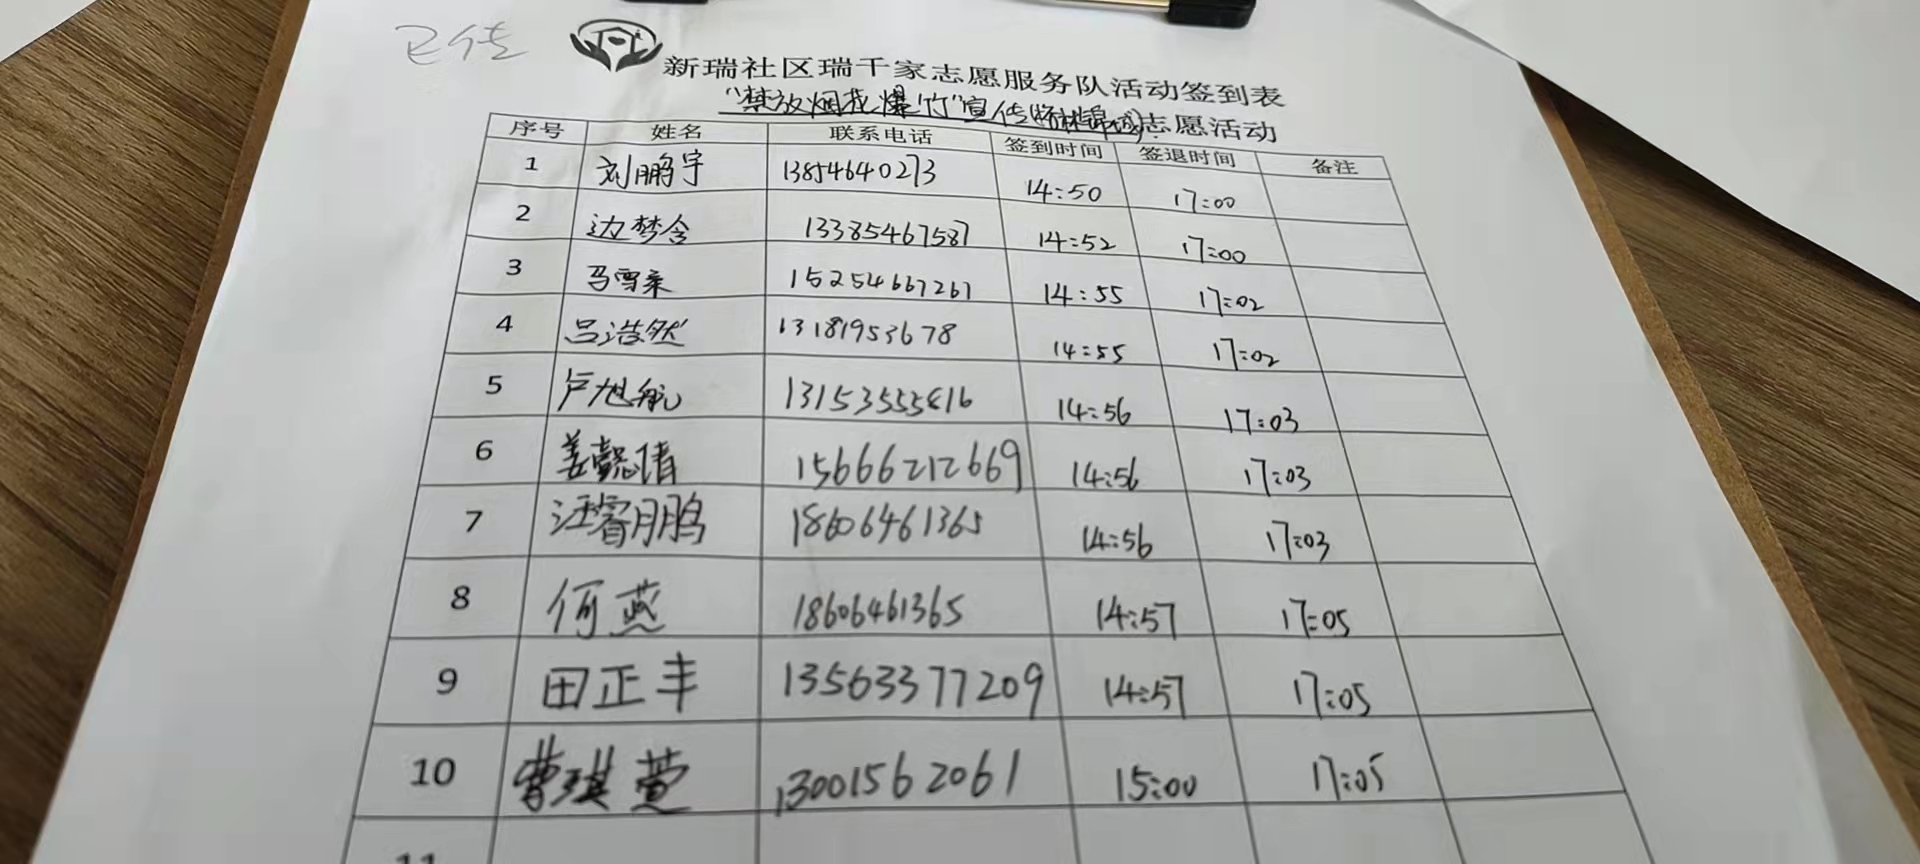 已传
新瑞社区瑞千家志愿服务队活动签到表
"禁放烟花爆竹"宣传(林锦城)志愿活动
序号 姓名 联系电话 签到时间 签退时间 备注
1 刘鹏宇 13854640273 14:50 17:00
2 边梦含 13385467587 14:52 17:00
3 马雪来 15254667267 14:55 17:02
4 吕浩然 13181953678 14:55 17:02
5 卢旭航 13153555816 14:56 17:03
6 姜懿倩 15666212669 14:56 17:03
7 汪睿鹏 18606461365 14:56 17:03
8 何燕 18606461365 14:57 17:05
9 田正丰 13563377209 14:57 17:05
10 曹琪萱 13001562061 15:00 17:05
11